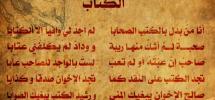 الكتاب
أنا من بدل بالكتب الصحابا لم أجد لي وافيا إلا الكتابا
صحبة لم أشك منها ريبة و وداد لم يكلفني عتابا
صاحب إن عبته أو لم تعب ليس بالواجد للصاحب عابا
تجد الكتب على النقد كما تجد الإخوان صدقا و كذابا
صالح الإخوان يبغيك التقى و رشيد الكتب يبغيك الصوابا